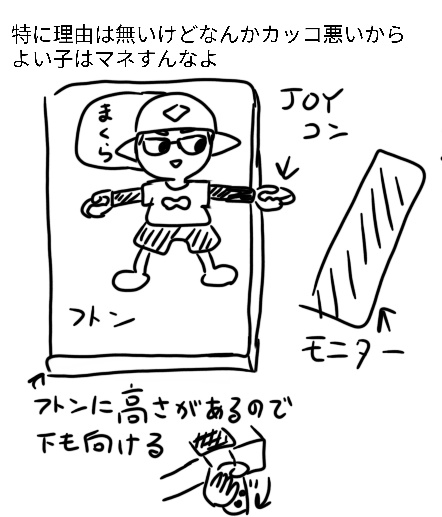 特に理由は無いけどなんかカッコ悪いから
よい子はマネすんなよ
まくら
JOY
コン
フトン
モニター
フトンに高さがあるので
下も向ける